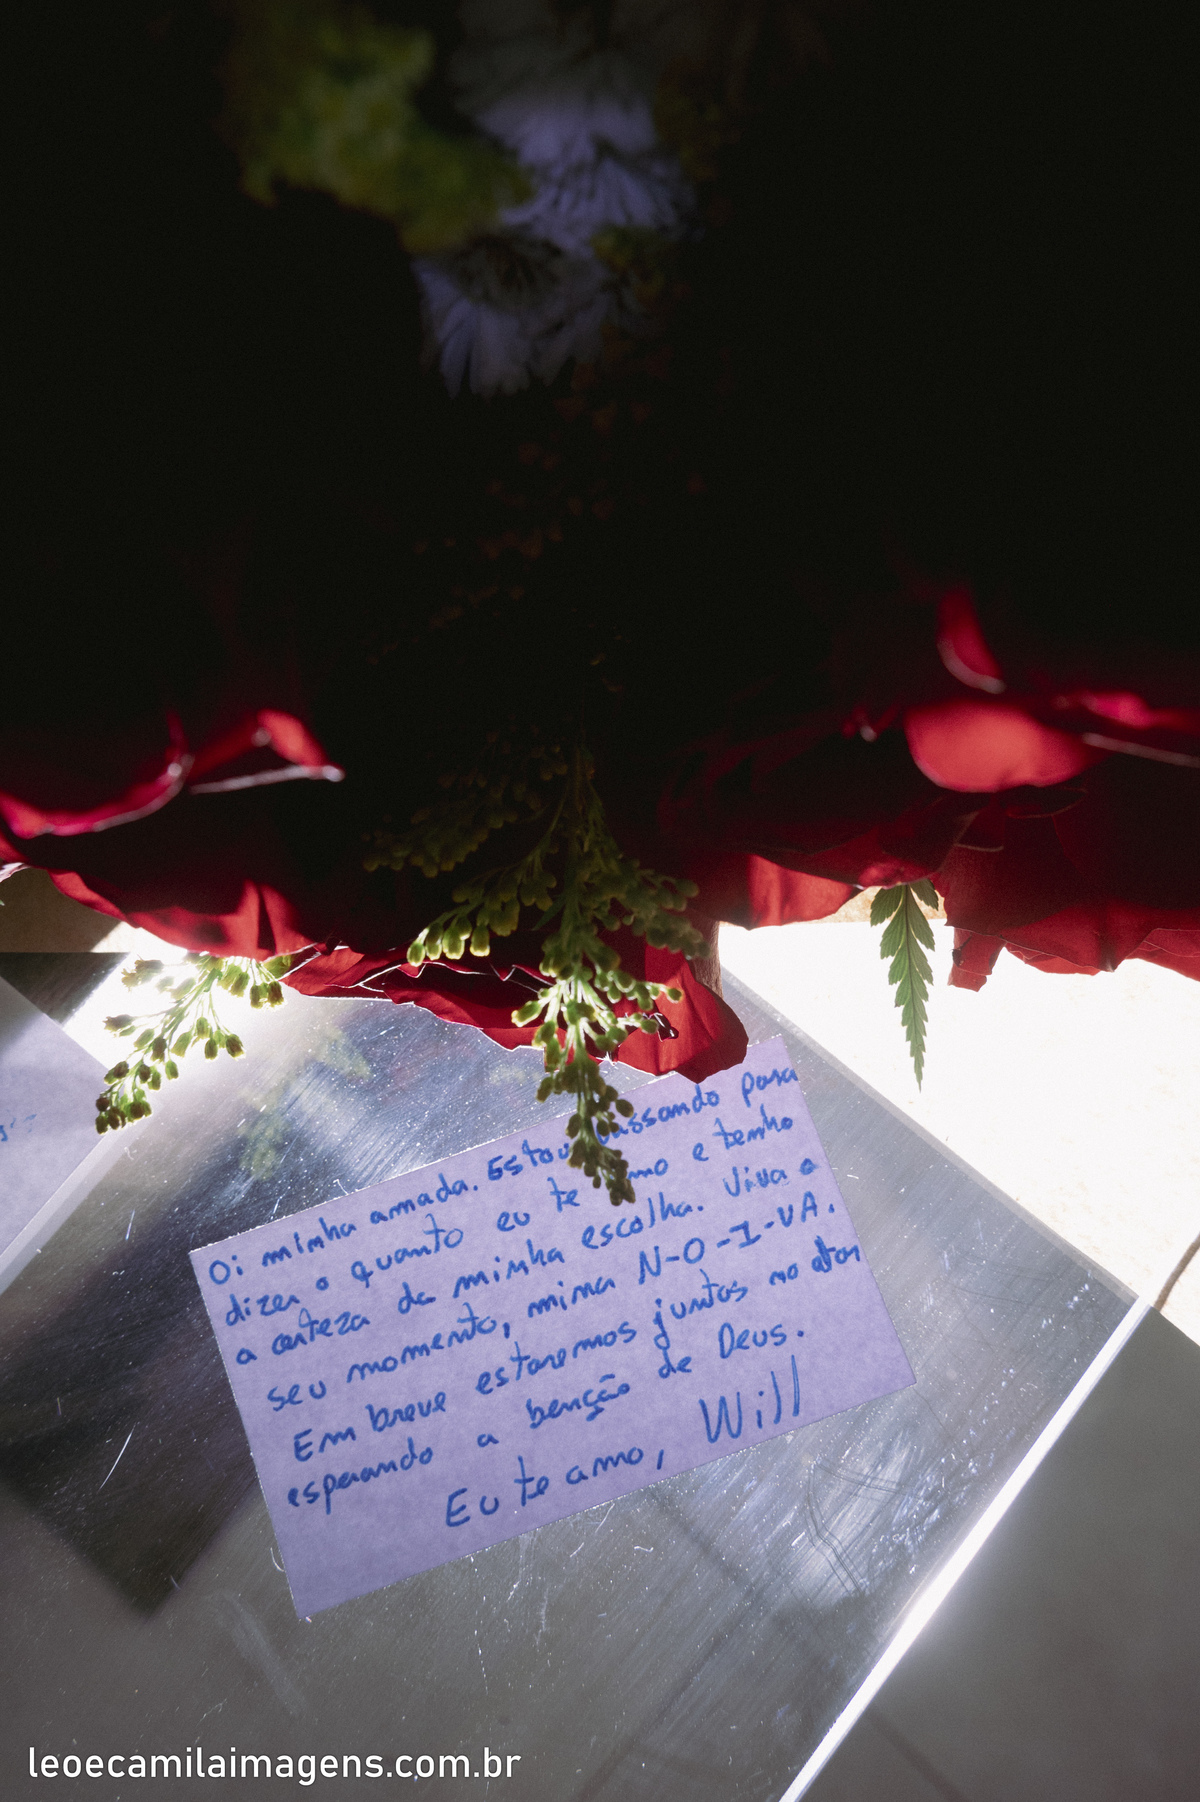 Oi minha amada. Estou passando para
dizer o quanto eu te amo e tenho
a certeza da minha escolha. Viva o
seu momento, mina N-O-I-VA.
Em breve estaremos juntos no altar
esperando a benção de Deus.
Eu te amo, Will
leoecamilaimagens.com.br